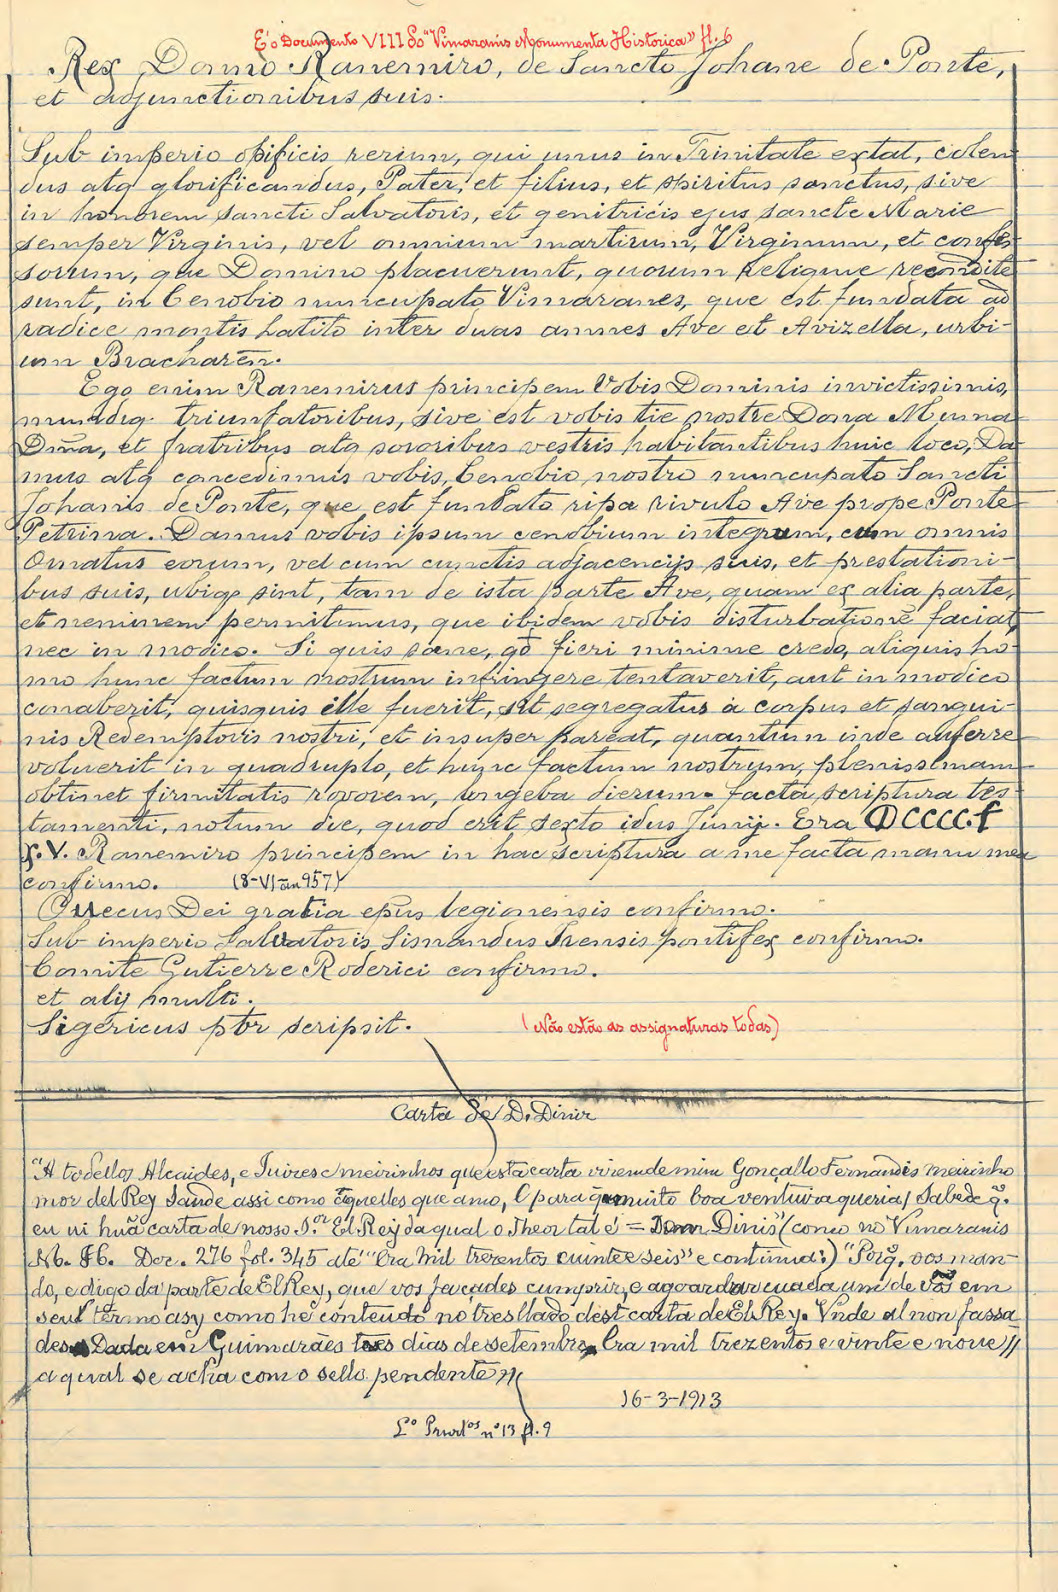 É o Documento VIII do "Vimaranis Monumenta Historica" fl. 6
Rex Domno Ranemiro, de Sancto Johane de Ponte,
et adjunctionibus suis.
Sub imperio opificis rerum, qui unus in Trinitate extat, colen
dus atq glorificandus, Pater, et filius, et spiritus sanctus, sive
in honorem sancti Salvatoris, et genitricis ejus sancte Marie
semper Virginis, vel omnium martirum, Virginum, et confes
sorum, que Domino placuerunt, quorum Relique recondite
sunt, in Cenobio nuncupato Vimaranes, que est fundata ad
radice montis Latito inter duas amnes Ave et Avizella, urbi-
um Bracharen.
Ego enim Ranemirus principem Vobis Dominis invictissimis,
mundiq. triunfatoribus, sive est vobis tie nostre Dona Muma
Diña, et fratribus atq sororibus vestris habitantibus huic loco, Da
mus atq concedimus vobis, Cenobio nostro nuncupato Sancti
Johanis de Ponte, que est fundato ripa rivulo Ave prope Ponte
Petrina. Damus vobis ipsum cenobium integrum, cum omnis
Ornatus eorum, vel cum cunctis adjacencijs suis, et prestationi-
bus suis, ubiq sint, tam de ista parte Ave, quam ex alia parte,
et neminem permitimus, que ibidem vobis disturbationē faciat,
nec in modico. Si quis sane, qd fieri minime credo, aliquis ho-
mo hunc factum nostrum infringere tentaverit, aut in modico
conaberit, quisquis ille fuerit, sit segregatus à corpus et sangui-
nis Redemptoris nostri, et insuper pareat, quantum inde auferre
voluerit in quadruplo, et hunc factum nostrum, plenissimam
obtinet firmitatis rovorem, longeba dierum. facta scriptura tes
tamenti, notum die, quod erit sexto idus Junij. Era DCCCC.
X.V. Ranemiro principem in hac scriptura a me facta manu mea
confirmo. (8-VI-ān 957)
Ovecus Dei gratia epũs legionensis confirmo.
Sub imperio Salvatoris Sisnandus Irensis pontifex confirmo.
Comite Gutierre Roderici confirmo.
et alij multi.
Sigericus pbr scripsit. (Não estão as assignaturas todas)
Carta de D. Diniz
"A todellos Alcaides, e Juizes e meirinhos que esta carta virem de mim Gonçallo Fernandes meirinho
mor del Rey Saude assi como aquelles que amo, e para q muito boa ventuira queria, Sabede q.
eu vi huã carta de nosso S.or El Rey da qual o Theor tal é = Dom Dinis" (como no Vimaranis
Doc. 276 fol. 345 até "Era Mil trezentos vinte e seis" e continua:) "Porq. vos man-
do, e digo da parte de El Rey, que vos façades cumprir, e agoardar cuada um de vos em
seus termo asy como he contendo no tresllado dest carta de El Rey. Vnde al non fassa
des. Dada em Guimarães tres dias de setembro. Era mil trezentos e vinte e nove //
a qual se acha com o sello pendente //
16-3-1913
nº 13 fl. 9